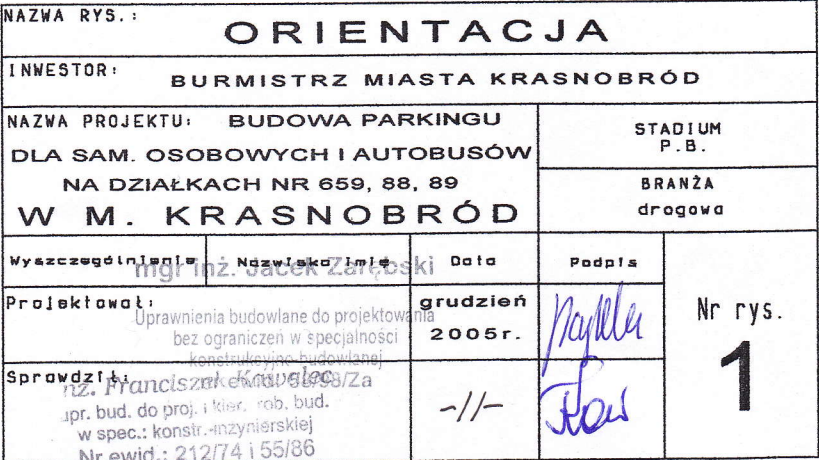 NAZWA RYS.:
ORIENTACJA
INWESTOR:
BURMISTRZ MIASTA KRASNOBRÓD
NAZWA PROJEKTU: BUDOWA PARKINGU
DLA SAM. OSOBOWYCH I AUTOBUSÓW
NA DZIAŁKACH NR 659, 88, 89
W M. KRASNOBRÓD
STADIUM
P.B.
BRANŻA
drogowa
Wyszczególnienie Nazwisko Imię Data Podpis
mgr inż. Jacek Zarębski
Projektował:
Uprawnienia budowlane do projektowania
bez ograniczeń w specjalności
konstrukcyjno-budowlanej
grudzień
2005r.
Nr rys.
1
Sprawdził:
inż. Franciszek Kowalec
upr. bud. do proj. i kier. rob. bud.
w spec.: konstr.-inżynierskiej
Nr ewid.: 212/74 i 55/86
-//-